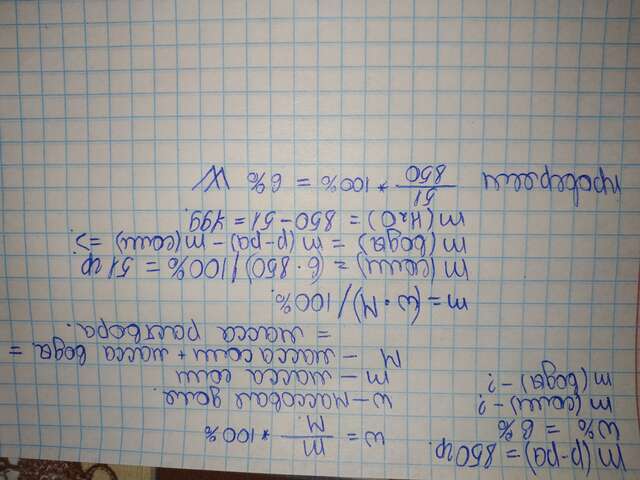 m(р-ра) = 850гр.
w% = 6%
m(соли) - ?
m(воды) - ?
w = m/M * 100%
w - массовая доля.
m - масса соли
M - масса соли + масса воды =
= масса раствора.
m = (w • M) / 100%.
m(соли) = (6 • 850) / 100% = 51 гр
m(воды) = m(р-ра) - m(соли) =>
m(H₂O) = 850 - 51 = 799.
проверяем 51/850 * 100% = 6% W